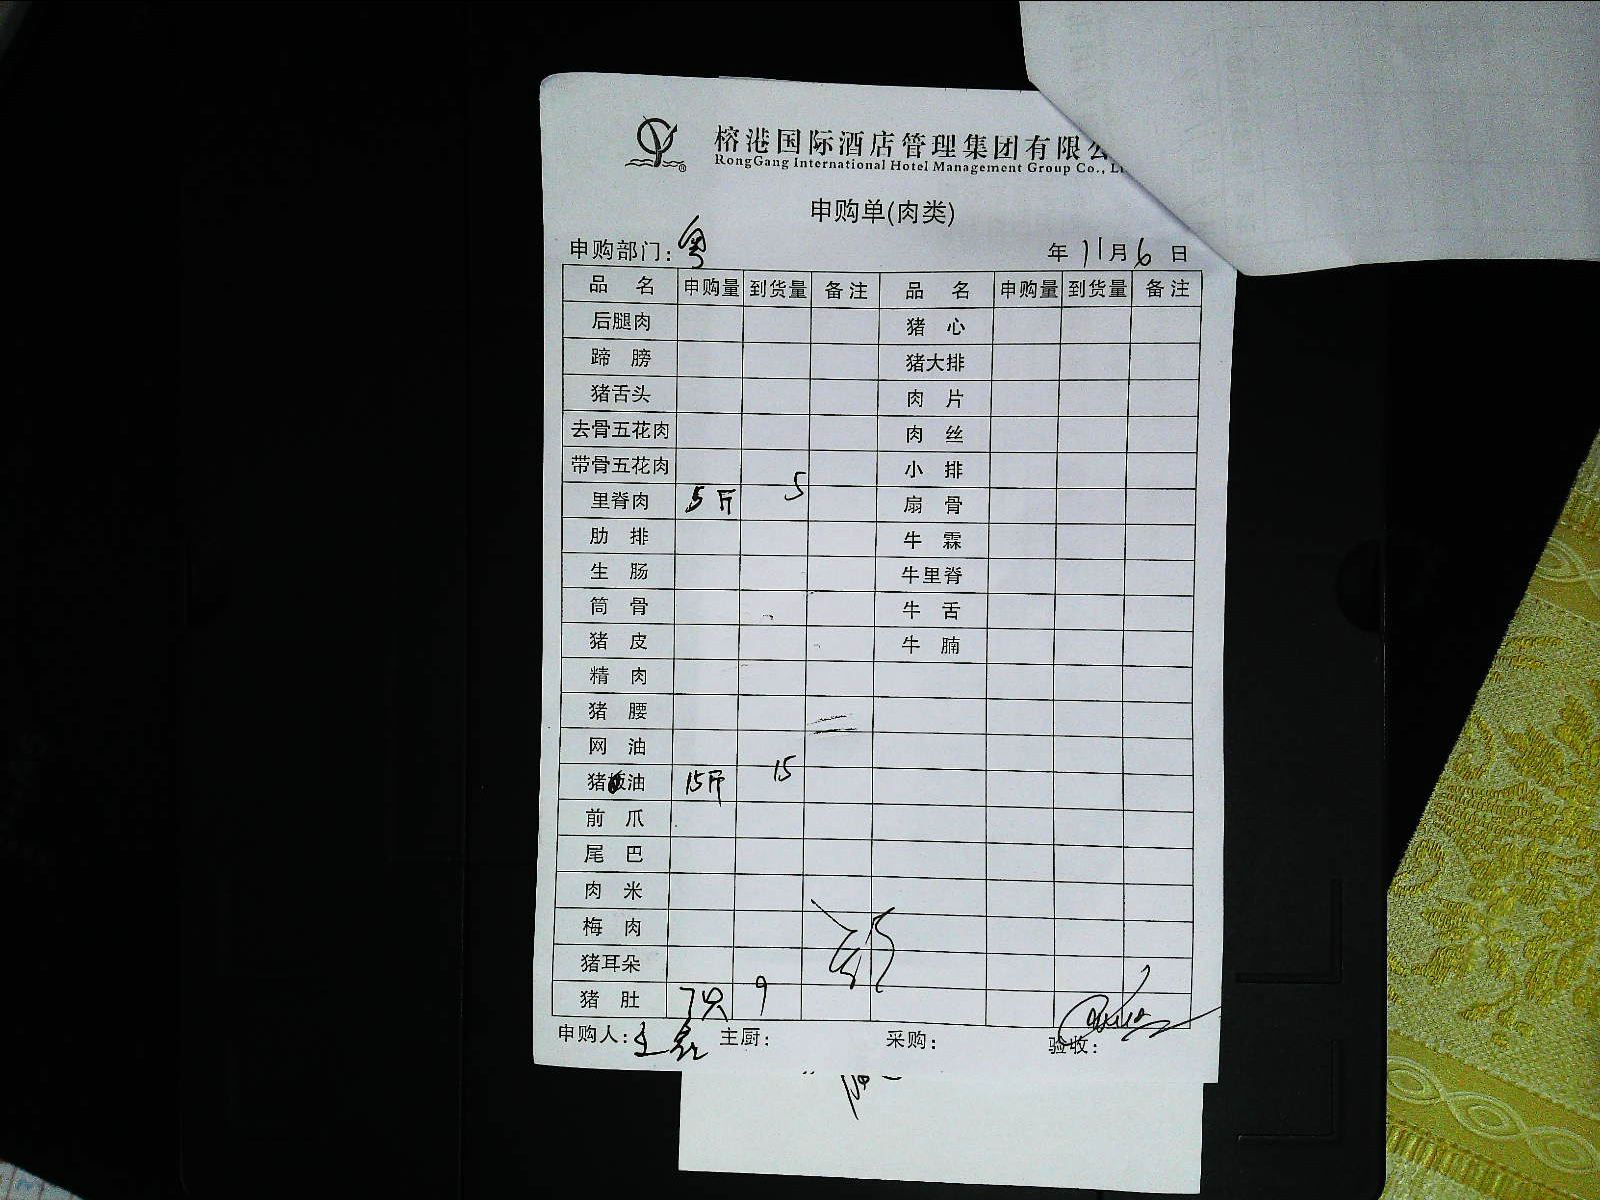 榕港国际酒店管理集团有限公
RongGang International Hotel Management Group Co., L
申购单(肉类)
申购部门: 粤 年 11月 6 日
品 名 申购量 到货量 备注 品 名 申购量 到货量 备注
后腿肉 猪 心
蹄 膀 猪大排
猪舌头 肉 片
去骨五花肉 肉 丝
带骨五花肉 小 排
里脊肉 5斤 5 扇 骨
肋 排 牛 霖
生 肠 牛里脊
筒 骨 牛 舌
猪 皮 牛 腩
精 肉
猪 腰
网 油
猪板油 15斤 15
前 爪
尾 巴
肉 米
梅 肉
猪耳朵
猪 肚 7只 9
申购人: 主厨: 采购: 验收: